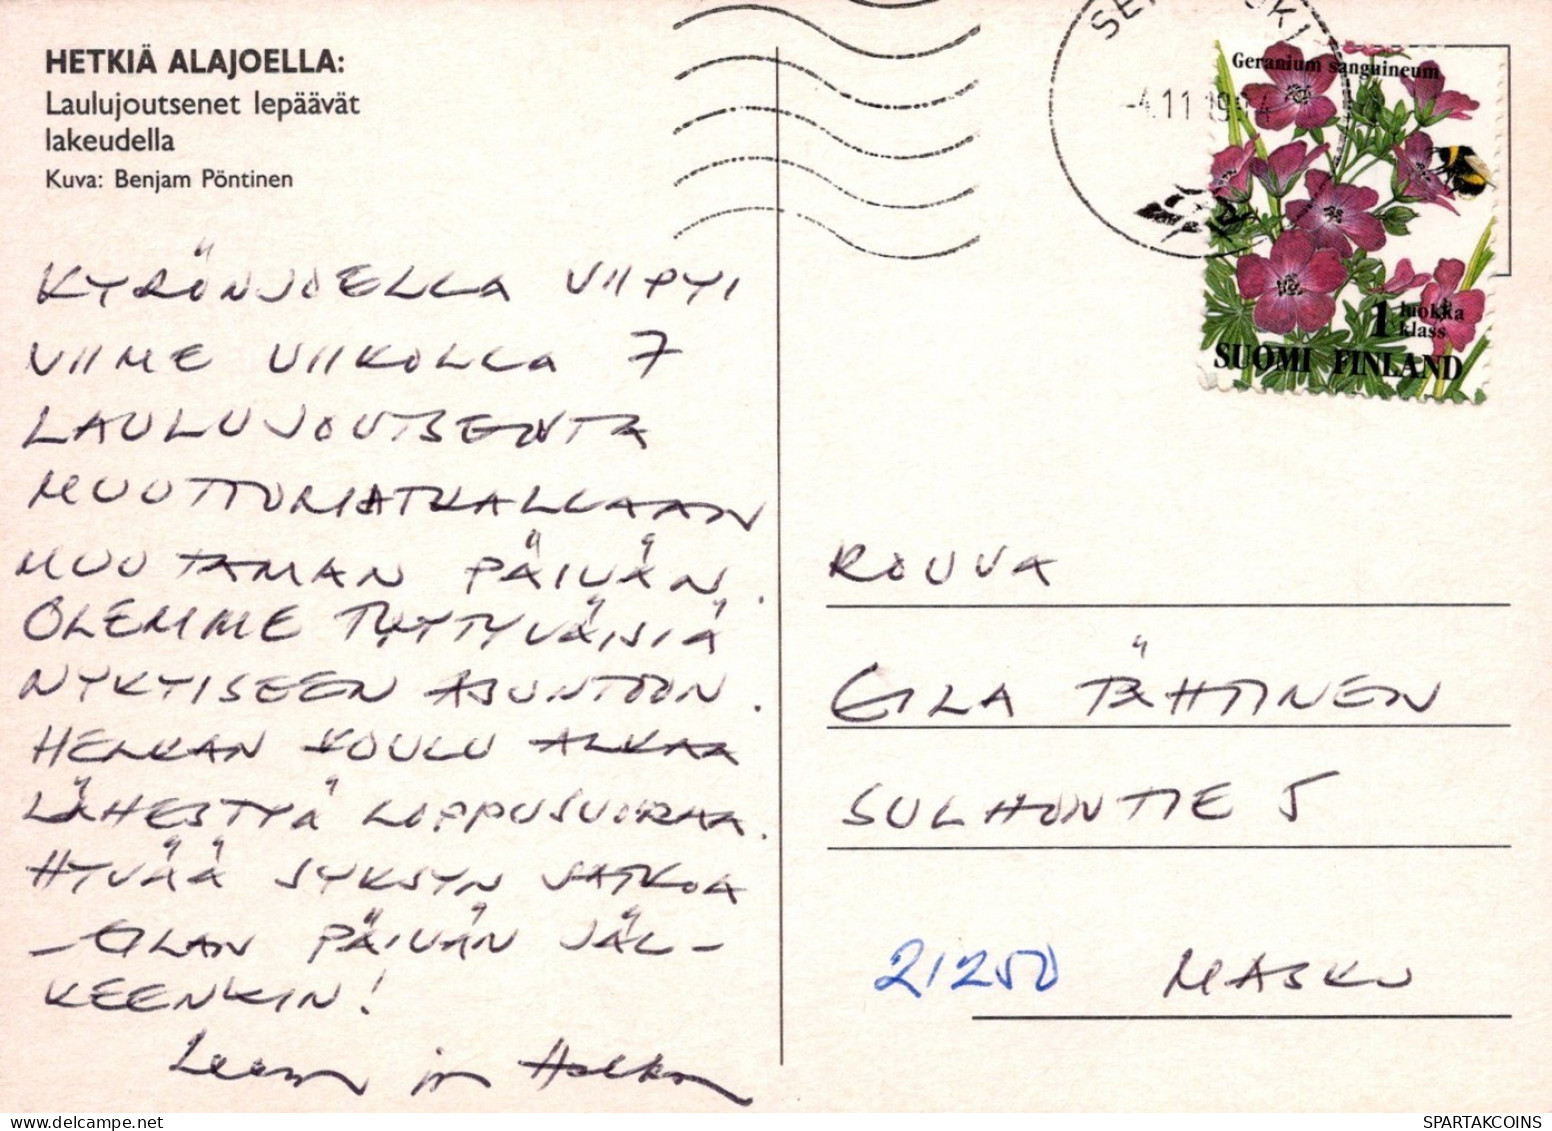 HETKIÄ ALAJOELLA:
Laulujoutsenet lepäävät
lakeudella
Kuva: Benjam Pöntinen
KYRÖNJOELLA VIIPYI
VIIME VIIKOLLA 7
LAULUJOUTSENTA
MUUTTOMATKALLAAN
MUUTAMAN PÄIVÄN.
OLEMME TYYTYVÄISIÄ
NYKYISEEN ASUNTOON.
HELKAN KOULU ALKAA
LÄHESTYÄ LOPPUSUORAA.
HYVÄÄ SYKSYN JATKOA
- EILAN PÄIVÄN JÄL-
KEENKIN!
Leena ja Helka
-4.11.1994
Geranium sanguineum
1 luokka
klass
SUOMI FINLAND
ROUVA
EILA TÄHTINEN
SULHONTIE 5
21250 MASKU
SPARTAKCOINS.COM